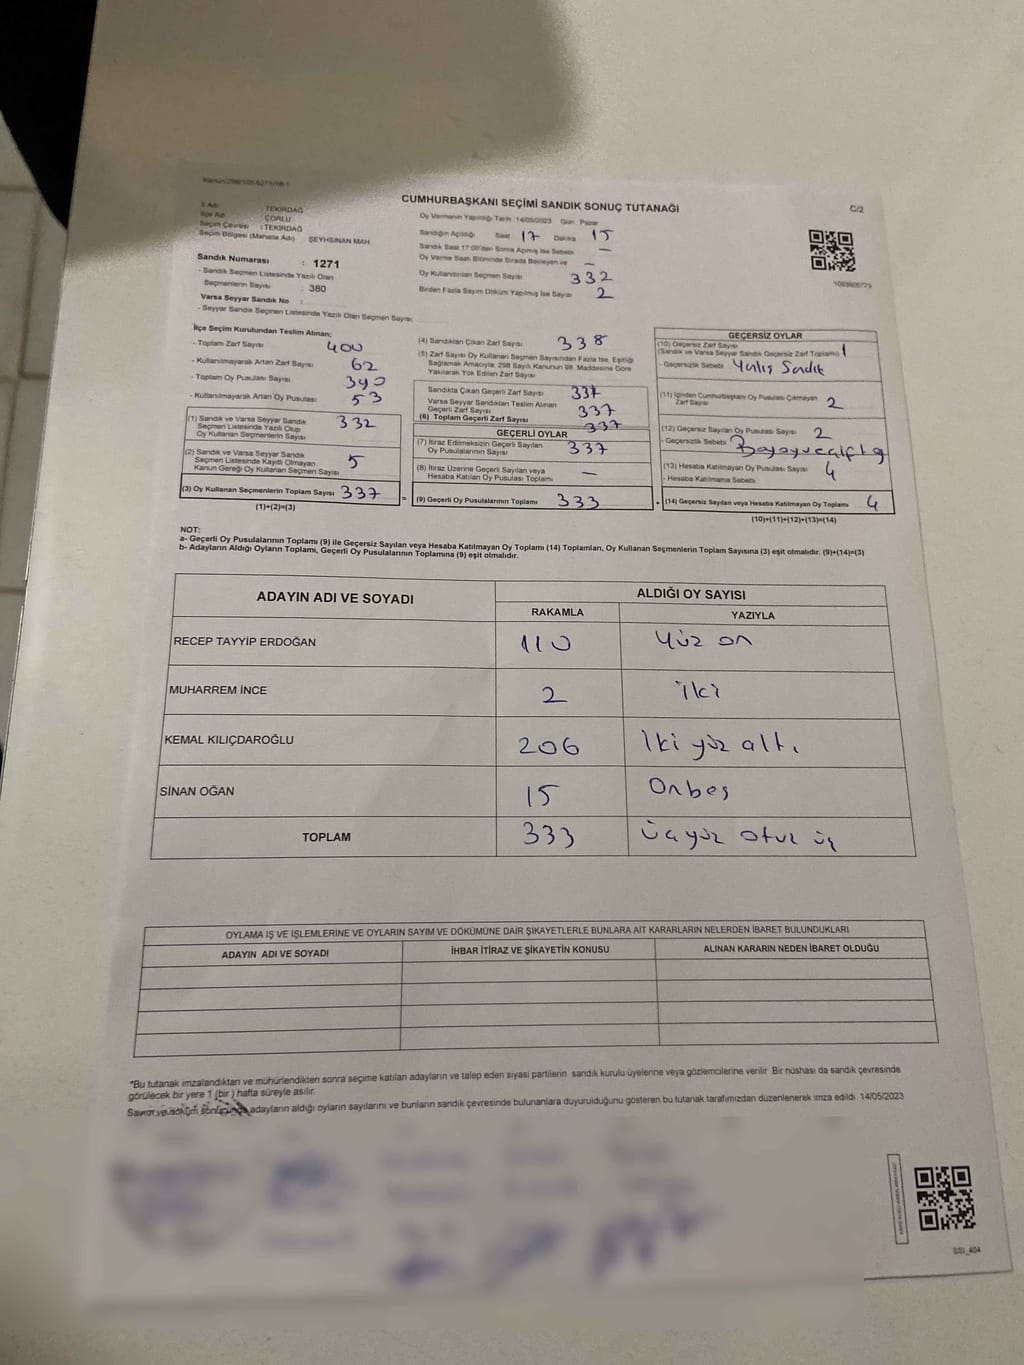 CUMHURBAŞKANI SEÇİMİ SANDIK SONUÇ TUTANAĞI
C/2
İl Adı : TEKİRDAĞ
İlçe Adı : ÇORLU
Seçim Çevresi : TEKİRDAĞ
Seçim Bölgesi (Mahalle Adı) ŞEYHSİNAN MAH.
Sandık Numarası : 1271
- Sandık Seçmen Listesinde Yazılı Olan
Seçmenlerin Sayısı : 380
Varsa Seyyar Sandık No :
- Seyyar Sandık Seçmen Listesinde Yazılı Olan Seçmen Sayısı:
Oy Vermenin Yapıldığı Tarih: 14/05/2023 Gün: Pazar
Sandığın Açıldığı Saat 17 Dakika 15
Sandık Saat 17:00'den Sonra Açılmış İse Sebebi —
Oy Verme Saati Bitiminde Sırada Bekleyen ve —
Oy Kullandırılan Seçmen Sayısı 332
Birden Fazla Sayım Döküm Yapılmış İse Sayısı 2
1093608773
İlçe Seçim Kurulundan Teslim Alınan;
- Toplam Zarf Sayısı 400
- Kullanılmayarak Artan Zarf Sayısı 62
- Toplam Oy Pusulası Sayısı 390
- Kullanılmayarak Artan Oy Pusulası 53
(1) Sandık ve Varsa Seyyar Sandık
Seçmen Listesinde Yazılı Olup
Oy Kullanan Seçmenlerin Sayısı 332
(2) Sandık ve Varsa Seyyar Sandık
Seçmen Listesinde Kayıtlı Olmayan
Kanun Gereği Oy Kullanan Seçmen Sayısı 5
(3) Oy Kullanan Seçmenlerin Toplam Sayısı 337
(1)+(2)=(3)
(4) Sandıktan Çıkan Zarf Sayısı 338
(5) Zarf Sayısı Oy Kullanan Seçmen Sayısından Fazla İse, Eşitliği
Sağlamak Amacıyla, 298 Sayılı Kanunun 98. Maddesine Göre
Yakılarak Yok Edilen Zarf Sayısı
Sandıkta Çıkan Geçerli Zarf Sayısı 337
Varsa Seyyar Sandıktan Teslim Alınan
Geçerli Zarf Sayısı 337
(6) Toplam Geçerli Zarf Sayısı 337
GEÇERLİ OYLAR
(7) İtiraz Edilmeksizin Geçerli Sayılan
Oy Pusulalarının Sayısı 337
(8) İtiraz Üzerine Geçerli Sayılan veya
Hesaba Katılan Oy Pusulası Toplamı —
= (9) Geçerli Oy Pusulalarının Toplamı 333
GEÇERSİZ OYLAR
(10) Geçersiz Zarf Sayısı
(Sandık ve Varsa Seyyar Sandık Geçersiz Zarf Toplamı) 1
- Geçersizlik Sebebi Yanlış Sandık
(11) İçinden Cumhurbaşkanı Oy Pusulası Çıkmayan
Zarf Sayısı 2
(12) Geçersiz Sayılan Oy Pusulası Sayısı 2
- Geçersizlik Sebebi
(13) Hesaba Katılmayan Oy Pusulası Sayısı 4
- Hesaba Katılmama Sebebi
+ (14) Geçersiz Sayılan veya Hesaba Katılmayan Oy Toplamı 4
(10)+(11)+(12)+(13)=(14)
NOT:
a- Geçerli Oy Pusulalarının Toplamı (9) ile Geçersiz Sayılan veya Hesaba Katılmayan Oy Toplamı (14) Toplamları, Oy Kullanan Seçmenlerin Toplam Sayısına (3) eşit olmalıdır. (9)+(14)=(3)
b- Adayların Aldığı Oyların Toplamı, Geçerli Oy Pusulalarının Toplamına (9) eşit olmalıdır.
ADAYIN ADI VE SOYADI
ALDIĞI OY SAYISI
RAKAMLA YAZIYLA
RECEP TAYYİP ERDOĞAN 110 Yüz on
MUHARREM İNCE 2 İki
KEMAL KILIÇDAROĞLU 206 İki yüz altı
SİNAN OĞAN 15 Onbeş
TOPLAM 333 Üçyüz otuz üç
OYLAMA İŞ VE İŞLEMLERİNE VE OYLARIN SAYIM VE DÖKÜMÜNE DAİR ŞİKAYETLERLE BUNLARA AİT KARARLARIN NELERDEN İBARET BULUNDUKLARI
ADAYIN ADI VE SOYADI İHBAR İTİRAZ VE ŞİKAYETİN KONUSU ALINAN KARARIN NEDEN İBARET OLDUĞU
*Bu tutanak imzalandıktan ve mühürlendikten sonra seçime katılan adayların ve talep eden siyasi partilerin sandık kurulu üyelerine veya gözlemcilerine verilir. Bir nüshası da sandık çevresinde
görülecek bir yere 1 (bir) hafta süreyle asılır.
Sayım ve döküm sonucunda adayların aldığı oyların sayılarını ve bunların sandık çevresinde bulunanlara duyurulduğunu gösteren bu tutanak tarafımızdan düzenlenerek imza edildi. 14/05/2023